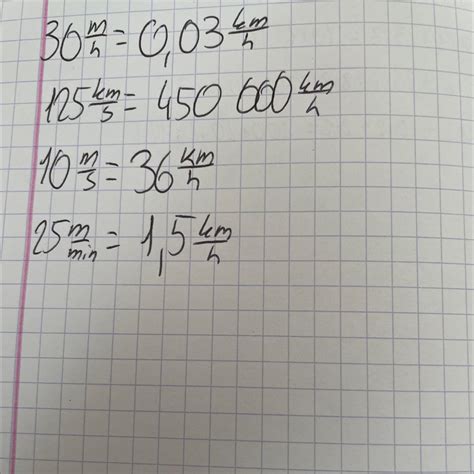 30 m/h = 0,03 km/h
125 km/s = 450 000 km/h
10 m/s = 36 km/h
25 m/min = 1,5 km/h